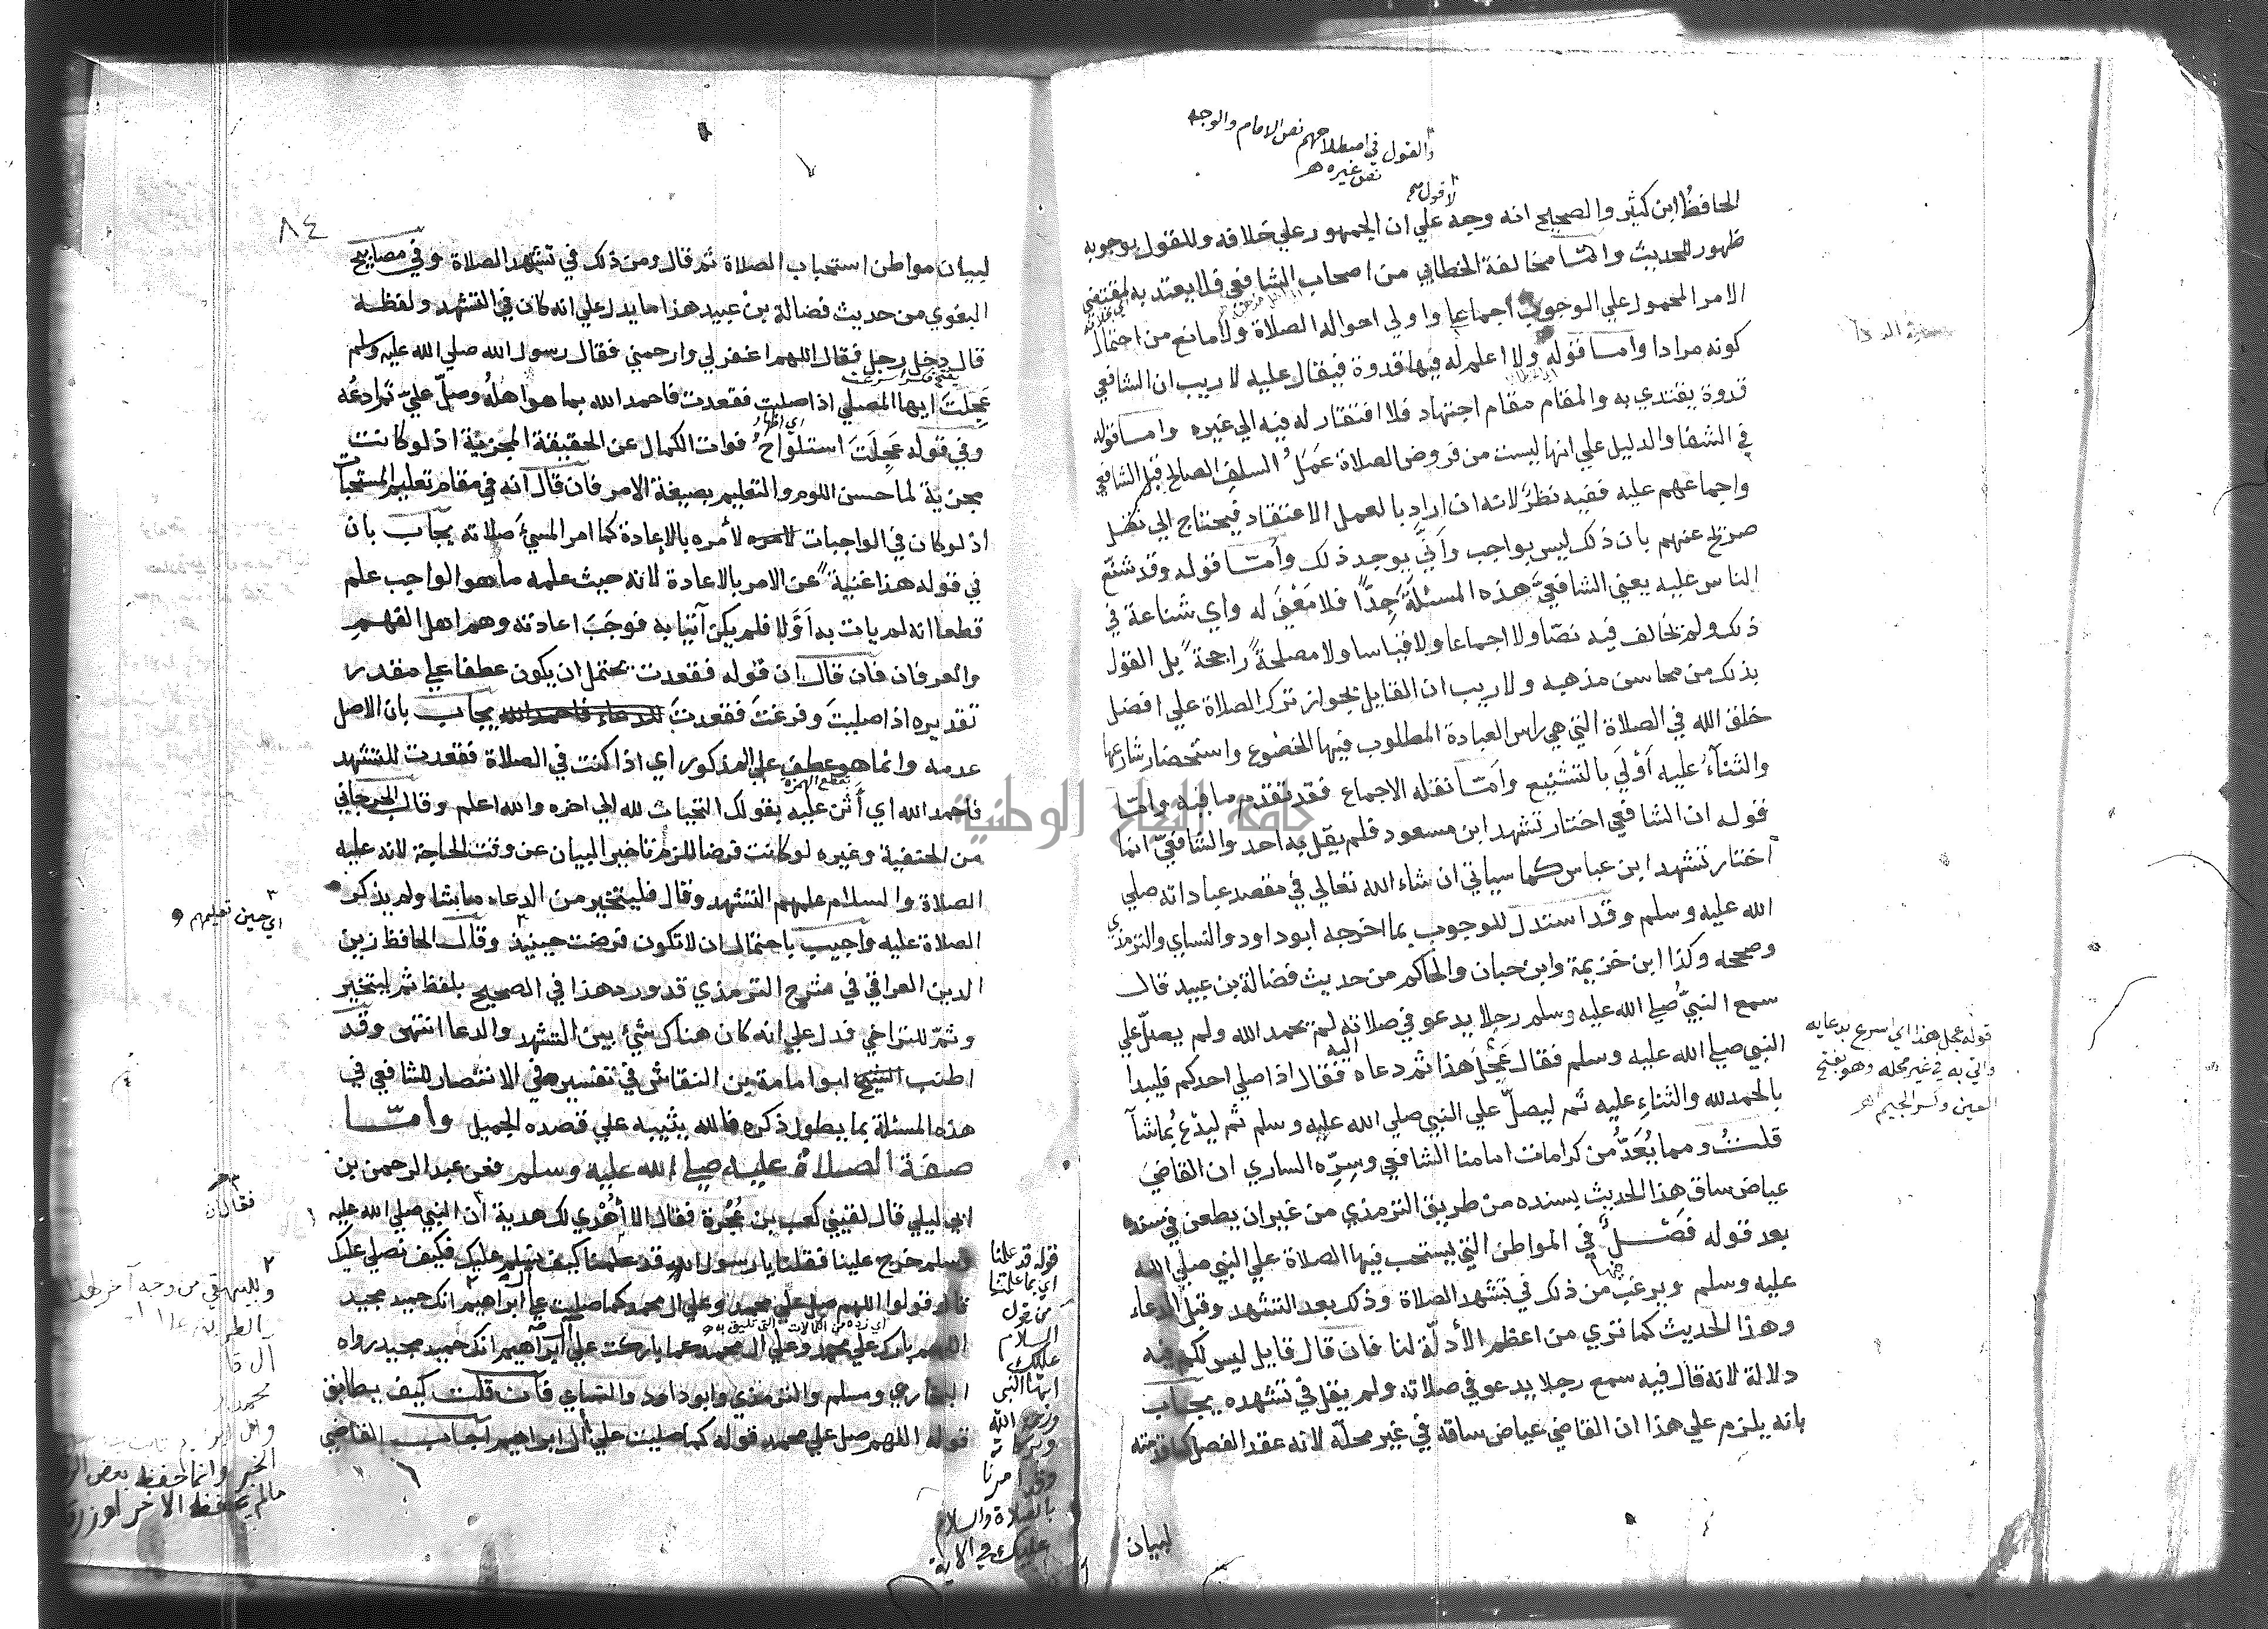 والقول في اصطلاحهم نص الامام والوجه
نص غيره هـ
لا قول صح
الحافظ ابن كثير والصحيح انه وجه علي ان الجمهور علي خلافه وللقول بوجوبه
ظهور للحديث واما مخالفة الخطابي من اصحاب الشافعي فلا يعتد به لمقتضي
الامر المحمول علي الوجوب اجماعا واولي احواله الصلاة ولا مانع من احتمال
كونه مرادا واما قوله ولا اعلم له فيها قدوة فيقال عليه لا ريب ان الشافعي
قدوة يقتدي به والمقام مقام اجتهاد فلا افتقار له فيه الي غيره واما قوله
في الشفا والدليل علي انها ليست من فروض الصلاة عمل السلف الصالح قبل الشافعي
واجماعهم عليه ففيه نظر لانه ان اراد بالعمل الاعتقاد فيحتاج الي نقل
صريح عنهم بان ذلك ليس بواجب وأنّي يوجد ذلك وأمّا قوله وقد شنع
الناس عليه يعني الشافعيّ هذه المسئلة جدًّا فلا معْني له واي شناعة في
ذلك ولم يخالف فيه نصّا ولا اجماعا ولا قياسا ولا مصلحة راجحة بل القول
بذلك من محاسن مذهبه ولا ريب ان القايل بجواز ترك الصلاة علي افضل
خلق الله في الصلاة التي هي راس العبادة المطلوب فيها الخضوع واستحضار شارعها
والثنآء عليه أولَي بالتشنيع وأمّا نقله الاجماع فقد تقدم ما فيه وامّا
قوله ان الشافعي اختار تشهد ابن مسعود فلم يقل به احد والشافعيّ انما
اختار تشهد ابن عباس كما سياتي ان شاء الله تعالي في مقصد عباداته صلي
الله عليه وسلم وقد استدل للوجوب بما اخرجه ابو داود والنساي والترمذي
وصححه وكذا ابن خزيمة وابن حبان والحاكم من حديث فضالة بن عبيد قال
سمع النبيّ صلي الله عليه وسلم رجلا يدعو في صلاته لم يحمد الله ولم يصلّ علي
النبي صلي الله عليه وسلم فقال عَجِلَ هذا ثم دعاه اليه فقال اذا صلي احدكم فليبدا
بالحمد لله والثناء عليه ثم ليصلّ علي النبي صلي الله عليه وسلم ثم ليدْعُ بما شآ
قلتُ ومما يُعَدُّ من كرامات امامنا الشافعي وسِرّه الساري ان القاضي
عياض ساق هذا الحديث بسنده من طريق الترمذي من غير ان يطعن في سنده
بعد قوله فَصْل في المواطن التي يستحب فيها الصلاة علي النبي صلي الله
عليه وسلم ويرغب من ذلك في تشهد الصلاة وذلك بعد التشهد وقبل الدعاء
وهذا الحديث كما تري من اعظم الأدلّة لنا فان قال قايل ليس لكم فيه
دلالة لانه قال فيه سمع رجلا يدعو في صلاته ولم يقل في تشهده يجاب
بانه يلزم علي هذا ان القاضي عياض ساقه في غير محلّه لانه عقد الفصل كما قدمته
لبيان
قوله عجل هذا اي اسرع بدعايه
واتي به في غير محله وهو بفتح
العين وكسر الجيم اهـ
٨٤
لبيان مواطن استحباب الصلاة ثم قال ومن ذلك في تشهد الصلاة وفي مصابيح
البغوي من حديث فضالة بن عبيد هذا ما يدل علي انه كان في التشهد ولفظه
قال دخل رجل فقال اللهم اغفر لي وارحمني فقال رسول الله صلي الله عليه وسلم
عَجِلتَ ايها المصلي اذا صليت فقعدت فاحمد الله بما هو اهلُه وصلّ عليّ ثم ادعُه
اي اظهار
وفي قوله عَجِلتَ استلواحُ فوات الكمال عن الحقيقة المجزية اذ لو كانت
مجزية لما حسن اللوم والتعليم بصيغة الامر فان قال انه في مقام تعليم المستحبات
اذ لو كان في الواجبات لأمره بالاعادة كما امر المسئ صلاته يجاب بان
في قوله هذا غنية عن الامر بالاعادة لانه حيث علمه ما هو الواجب علم
قطعا انه لم يات به أوّلا فلم يكن آتيا به فوجَبَ اعادته وهم اهل الفهم
والعرفان فان قال ان قوله فقعدت يحتمل ان يكون عطفا علي مقدر
تقديره اذا صليتَ وفرغتَ فقعدتَ للدعاء فاحمد الله يجاب بان الاصل
عدمه وانما هو عطف علي المذكور اي اذا كنت في الصلاة فقعدت للتشهد
بقطع الهمزة
فاحمد الله اي أثن عليه بقولك التحيات لله الي اخره والله اعلم وقال الجرجاني
من الحنفية وغيره لو كانت فرضا للزم تاخير البيان عن وقت الحاجة لانه عليه
الصلاة والسلام علمهم التشهد وقال فليتخير من الدعاء ما شا ولم يذكر
الصلاة عليه واجيب باحتمال ان لا تكون فرضت حينيذ وقال الحافظ زين
الدين العراقي في شرح الترمذي قد ورد هذا في الصحيح بلفظ ثم ليتخير
وثمّ للتراخي فدل علي انه كان هناك شئ بين التشهد والدعا انتهي وقد
اطنب الشيخ ابو امامة بن النقاش في تفسيره في الانتصار للشافعي في
هذه المسئلة بما يطول ذكره فالله يثيبه علي قصده الجميل وأمّا
صفة الصلاة عليه صلي الله عليه وسلم فعن عبد الرحمن بن
ابي ليلي قال لقيني كعب بن عُجْرة فقال الا أُهْدي لك هدية أن النبي صلي الله عليه
وسلم خرج علينا فقلنا يا رسول الله قد علمنا كيف نسلم عليك فكيف نصلي عليك
قال قولوا اللهم صل علي محمد وعلي ال محمد كما صليت علي ال ابراهيم انك حميد مجيد
اي زده من الكمالات التي تليق به
اللهم بارك علي محمد وعلي ال محمد كما باركت علي ال ابراهيم انك حميد مجيد رواه
البخاري ومسلم والترمذي وابو داود والنساي فان قلت كيف يطابق
قوله اللهم صل علي محمد قوله كما صليت علي أل ابراهيم اجاب القاضي
اي حين تعليمهم
فقال ان
وللبيهقي من وجه آخر
الخبر وانما حفظ بعض
مالم يحفظ الاخر
قوله قد علمنا
اي بما علمتنا
من قول
السلام
عليك
ايها النبي
ورحمة الله
وبركاته
وقد امرنا
بالصلاة والسلام
عليك في الاية
جامعة النجاح الوطنية